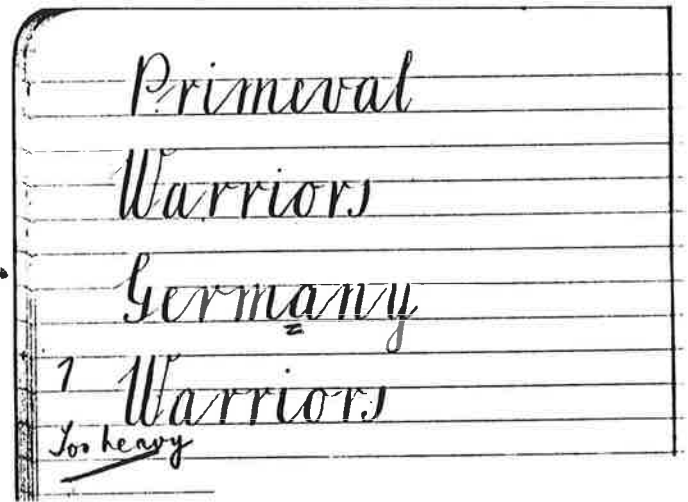 Primeval
Warriors
Germany
1 Warriors
Too heavy